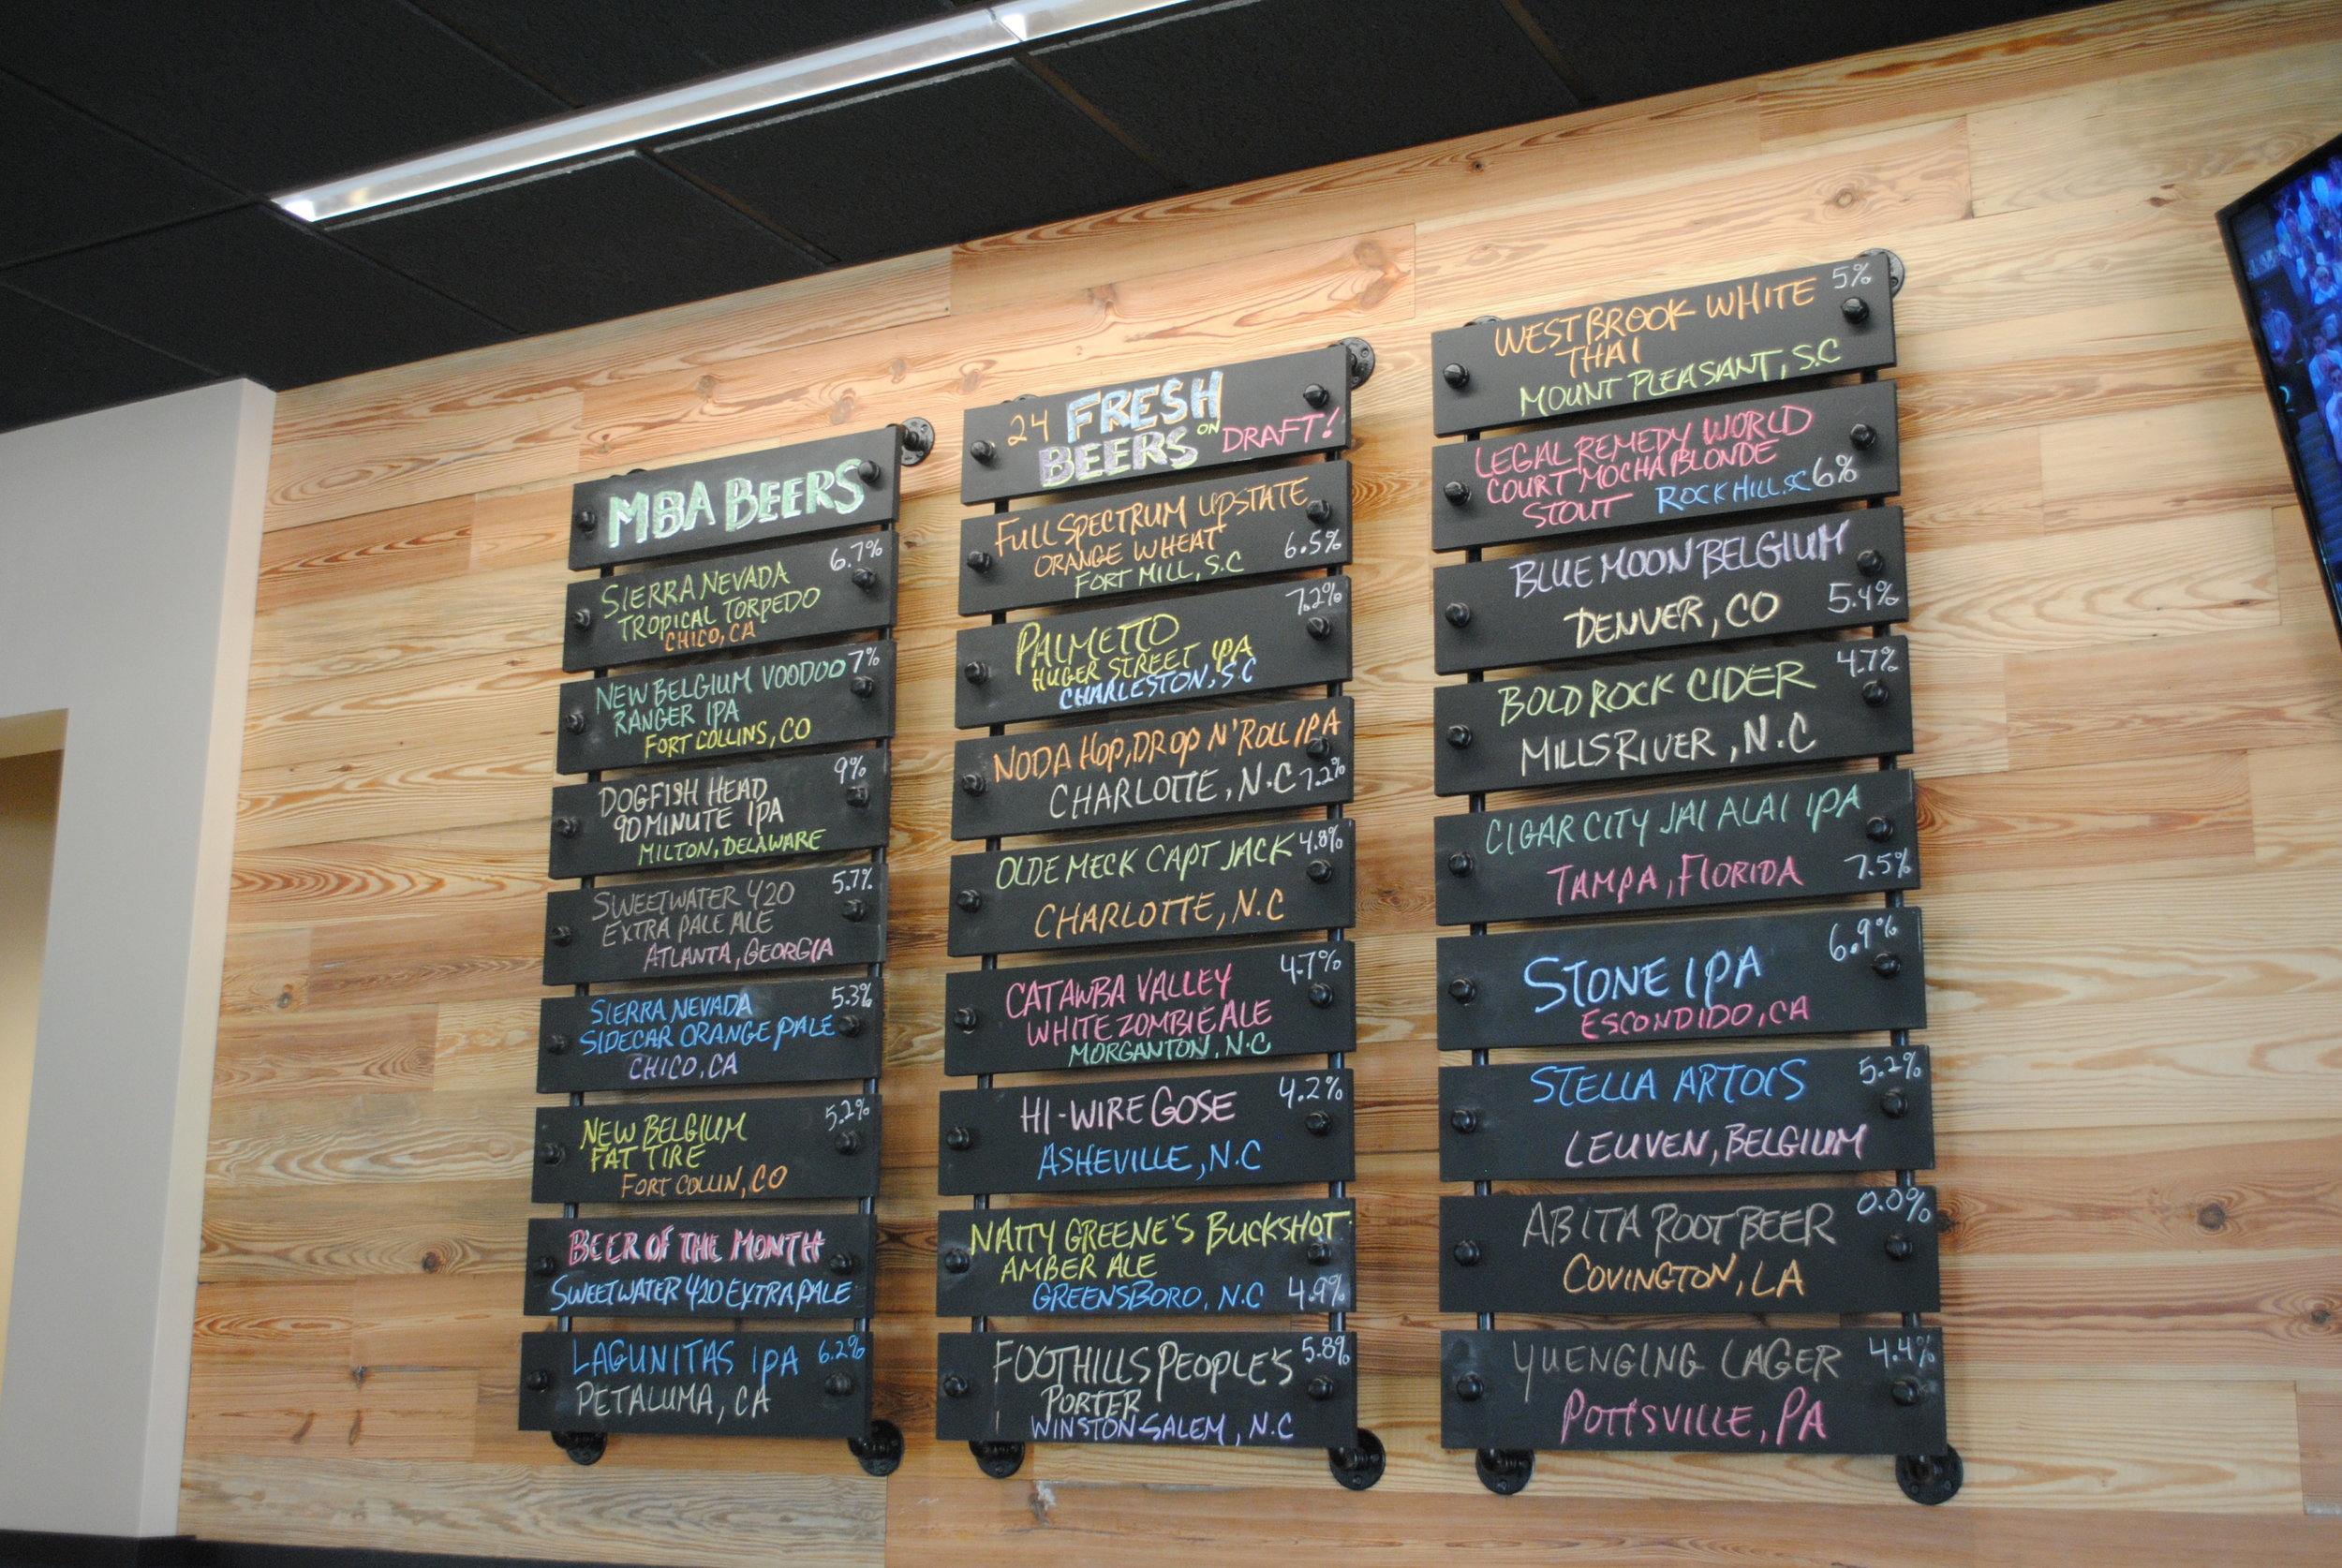 MBA BEERS
6.7%
SIERRA NEVADA
TROPICAL TORPEDO
CHICO, CA
NEW BELGIUM VOODOO 7%
RANGER IPA
FORT COLLINS, CO
9%
DOGFISH HEAD
90 MINUTE IPA
MILTON, DELAWARE
5.7%
SWEETWATER 420
EXTRA PALE ALE
ATLANTA, GEORGIA
5.3%
SIERRA NEVADA
SIDECAR ORANGE PALE
CHICO, CA
5.2%
NEW BELGIUM
FAT TIRE
FORT COLLIN, CO
BEER OF THE MONTH
SWEETWATER 420 EXTRA PALE
LAGUNITAS IPA 6.2%
PETALUMA, CA
24 FRESH
BEERS ON DRAFT!
FULL SPECTRUM UPSTATE
ORANGE WHEAT 6.5%
FORT MILL, S.C
7.2%
PALMETTO
HUGER STREET IPA
CHARLESTON, S.C
NODA HOP, DROP N' ROLL IPA
CHARLOTTE, N.C 7.2%
OLDE MECK CAPT JACK 4.8%
CHARLOTTE, N.C
4.7%
CATAWBA VALLEY
WHITE ZOMBIE ALE
MORGANTON, N.C
HI-WIRE GOSE 4.2%
ASHEVILLE, N.C
NATTY GREENE'S BUCKSHOT
AMBER ALE
GREENSBORO, N.C 4.9%
FOOTHILLS PEOPLE'S 5.8%
PORTER
WINSTON SALEM, N.C
WESTBROOK WHITE 5%
THAI
MOUNT PLEASANT, S.C
LEGAL REMEDY WORLD
COURT MOCHA BLONDE
STOUT ROCK HILL. SC 6%
BLUE MOON BELGIUM
DENVER, CO 5.4%
BOLD ROCK CIDER 4.7%
MILLS RIVER, N.C
CIGAR CITY JAI ALAI IPA
TAMPA, FLORIDA 7.5%
6.9%
STONE IPA
ESCONDIDO, CA
STELLA ARTOIS 5.2%
LEUVEN, BELGIUM
ABITA ROOT BEER 0.0%
COVINGTON, LA
YUENGING LAGER 4.4%
POTTSVILLE, PA